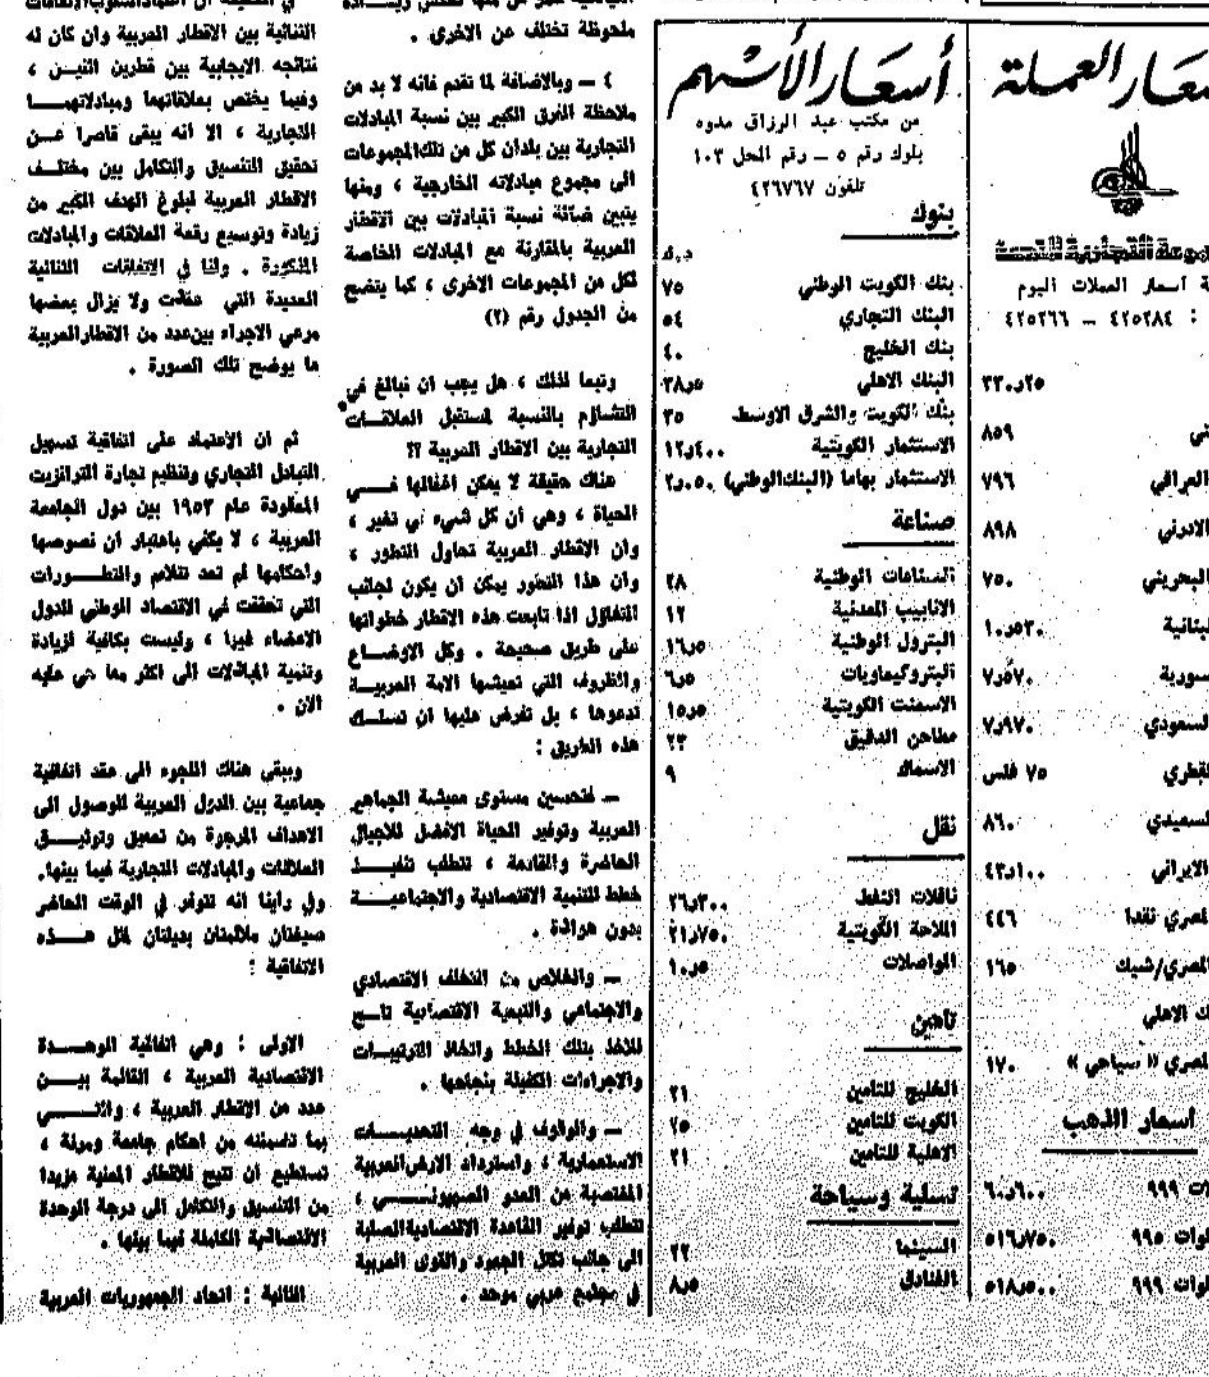 سعار العملة
عة أسعار العملات اليوم
: ٤٢٥٢٨٤ — ٤٢٥٢٦٦
٣٣٠ر٢٥
ني ٨٥٩
العراقي ٧٩٦
الاردني ٨٩٨
البحريني ٧٥٠
لبنانية ١٠ر٥٣٠
سورية ٧ر٥٧٠
لسعودي ٧ر٩٧٠
لقطري ٧٥ فلس
لسعيدي ٨٦٠
الايراني ٤٣ر١٠٠
لمصري نقدا ٤٤٦
لمصري/شيك ١٦٥
ك الاهلي
لمصري « سياحي » ١٧٠
اسعار الذهب
ات ٩٩٩ ٦٠ر٦٠٠
لوات ٩٩٥ ٥١٦ر٧٥٠
لوات ٩٩٩ ٥١٨ر٥٠٠
أسعار الأسهم
من مكتب عبد الرزاق مدوه
بلوك رقم ٥ — رقم المحل ١٠٣
تلفون ٤٢٦٧٦٧
بنوك
د.ك
بنك الكويت الوطني ٧٥
البنك التجاري ٥٤
بنك الخليج ٤٠
البنك الاهلي ٣٨ر٥
بنك الكويت والشرق الاوسط ٣٥
الاستثمار الكويتية ١٢ر٤٠٠
الاستثمار بهاما (البنك الوطني) ٢ر٠٥٠
صناعة
الصناعات الوطنية ٢٨
الانابيب المعدنية ١٢
البترول الوطنية ١٦ر٥
البتروكيماويات ٦ر٥
الاسمنت الكويتية ١٥ر٥
مطاحن الدقيق ٢٣
الاسماك ٩
نقل
ناقلات النفط ٢٦ر٣٠٠
الملاحة الكويتية ٢١ر٧٥٠
المواصلات ١٠ر٥
تأمين
الخليج للتامين ٢١
الكويت للتامين ٢٥
الاهلية للتامين ٢١
تسلية وسياحة
السينما ٢٢
الفنادق ٨ر٥
ملحوظة تختلف عن الاخرى .
٤ — وبالاضافة لما تقدم فانه لا بد من
ملاحظة الفرق الكبير بين نسبة المبادلات
التجارية بين بلدان كل من تلك المجموعات
الى مجموع مبادلاته الخارجية ، ومنها
يتبين ضآلة نسبة المبادلات بين الاقطار
العربية بالمقارنة مع المبادلات الخاصة
لكل من المجموعات الاخرى ، كما يتضح
من الجدول رقم (٢)
وتبعا لذلك ، هل يجب ان نبالغ في
التشاؤم بالنسبة لمستقبل العلاقــات
التجارية بين الاقطار العربية ؟؟
هناك حقيقة لا يمكن اغفالها فــــي
الحياة ، وهي أن كل شيء في تغير ،
وأن الاقطار العربية تحاول التطور ،
وأن هذا التطور يمكن أن يكون لجانب
التفاؤل اذا تابعت هذه الاقطار خطواتها
على طريق صحيحة . وكل الاوضــاع
والظروف التي تعيشها الامة العربيــة
تدعوها ، بل تفرض عليها ان تسلــك
هذه الطريق :
— لتحسين مستوى معيشة الجماهير
العربية وتوفير الحياة الافضل للاجيال
الحاضرة والقادمة ، تتطلب تنفيــذ
خطط للتنمية الاقتصادية والاجتماعيــة
بدون هوادة .
— والخلاص من التخلف الاقتصادي
والاجتماعي والتبعية الاقتصادية
للاخذ بتلك الخطط واتخاذ الترتيبــات
والاجراءات الكفيلة بنجاحها .
— والوقوف في وجه التحديــات
الاستعمارية ، واسترداد الارض العربية
المغتصبة من العدو الصهيونــــي ،
تتطلب توفير القاعدة الاقتصادية الصلبة
الى جانب تكتل الجهود والقوى العربية
في مجتمع عربي موحد .
الثنائية بين الاقطار العربية وان كان له
نتائجه الايجابية بين قطرين اثنيــن ،
وفيما يختص بعلاقاتهما ومبادلاتهمــا
التجارية ، الا انه يبقى قاصرا عــن
تحقيق التنسيق والتكامل بين مختلــف
الاقطار العربية لبلوغ الهدف الكبير من
زيادة وتوسيع رقعة العلاقات والمبادلات
المذكورة . ولنا في الاتفاقات الثنائية
العديدة التي عقدت ولا يزال بعضها
مرعي الاجراء بين عدد من الاقطار العربية
ما يوضح تلك الصورة .
ثم ان الاعتماد على اتفاقية تسهيل
التبادل التجاري وتنظيم تجارة الترانزيت
المعقودة عام ١٩٥٣ بين دول الجامعة
العربية ، لا يكفي باعتبار ان نصوصها
واحكامها لم تعد تتلاءم والتطــورات
التي تحققت في الاقتصاد الوطني للدول
الاعضاء فيها ، وليست بكافية لزيادة
وتنمية المبادلات الى اكثر مما هي عليه
الان .
ويبقى هناك اللجوء الى عقد اتفاقية
جماعية بين الدول العربية للوصول الى
الاهداف المرجوة من تعميق وتوثيــق
العلاقات والمبادلات التجارية فيما بينها.
وفي رأينا انه تتوفر في الوقت الحاضر
صيغتان ملائمتان بديلتان لمثل هــذه
الاتفاقية :
الاولى : وهي اتفاقية الوحــدة
الاقتصادية العربية ، القائمة بيــن
عدد من الاقطار العربية ، والتــــي
بما تضمنته من احكام جامعة ومرنة ،
تستطيع ان تتيح للاقطار المعنية مزيدا
من التنسيق والتكامل الى درجة الوحدة
الاقتصادية الكاملة فيما بينها .
الثانية : اتحاد الجمهوريات العربية